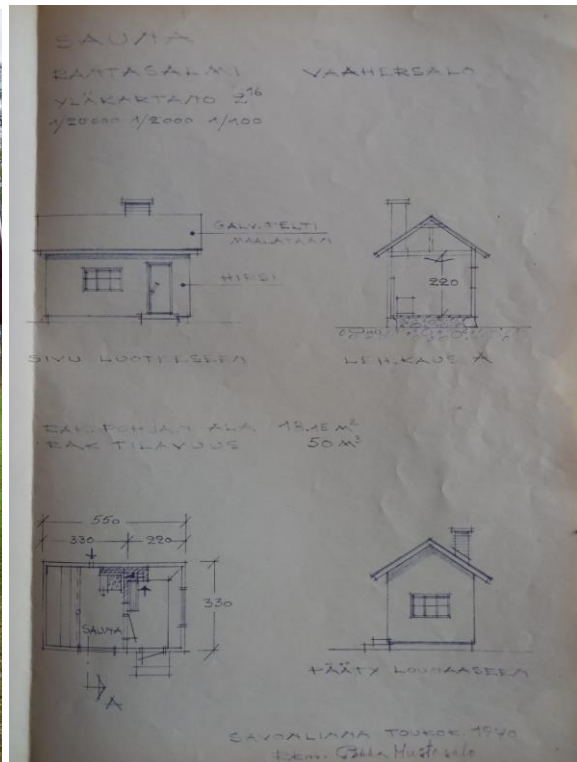 SAUNA
RANTASALMI VAAHERSALO
YLÄKARTANO 2¹⁶
1/20000 1/2000 1/100
GALV. PELTI
MAALATAAN
HIRSI
220
SIVU LUOTEESEEN
LEIKKAUS A
RAK. POHJAN ALA 18,15 M²
RAK TILAVUUS 50 M³
550
330 220
330
SAUNA
A
PÄÄTY LOUNAASEEN
SAVONLINNA TOUKOK. 1970